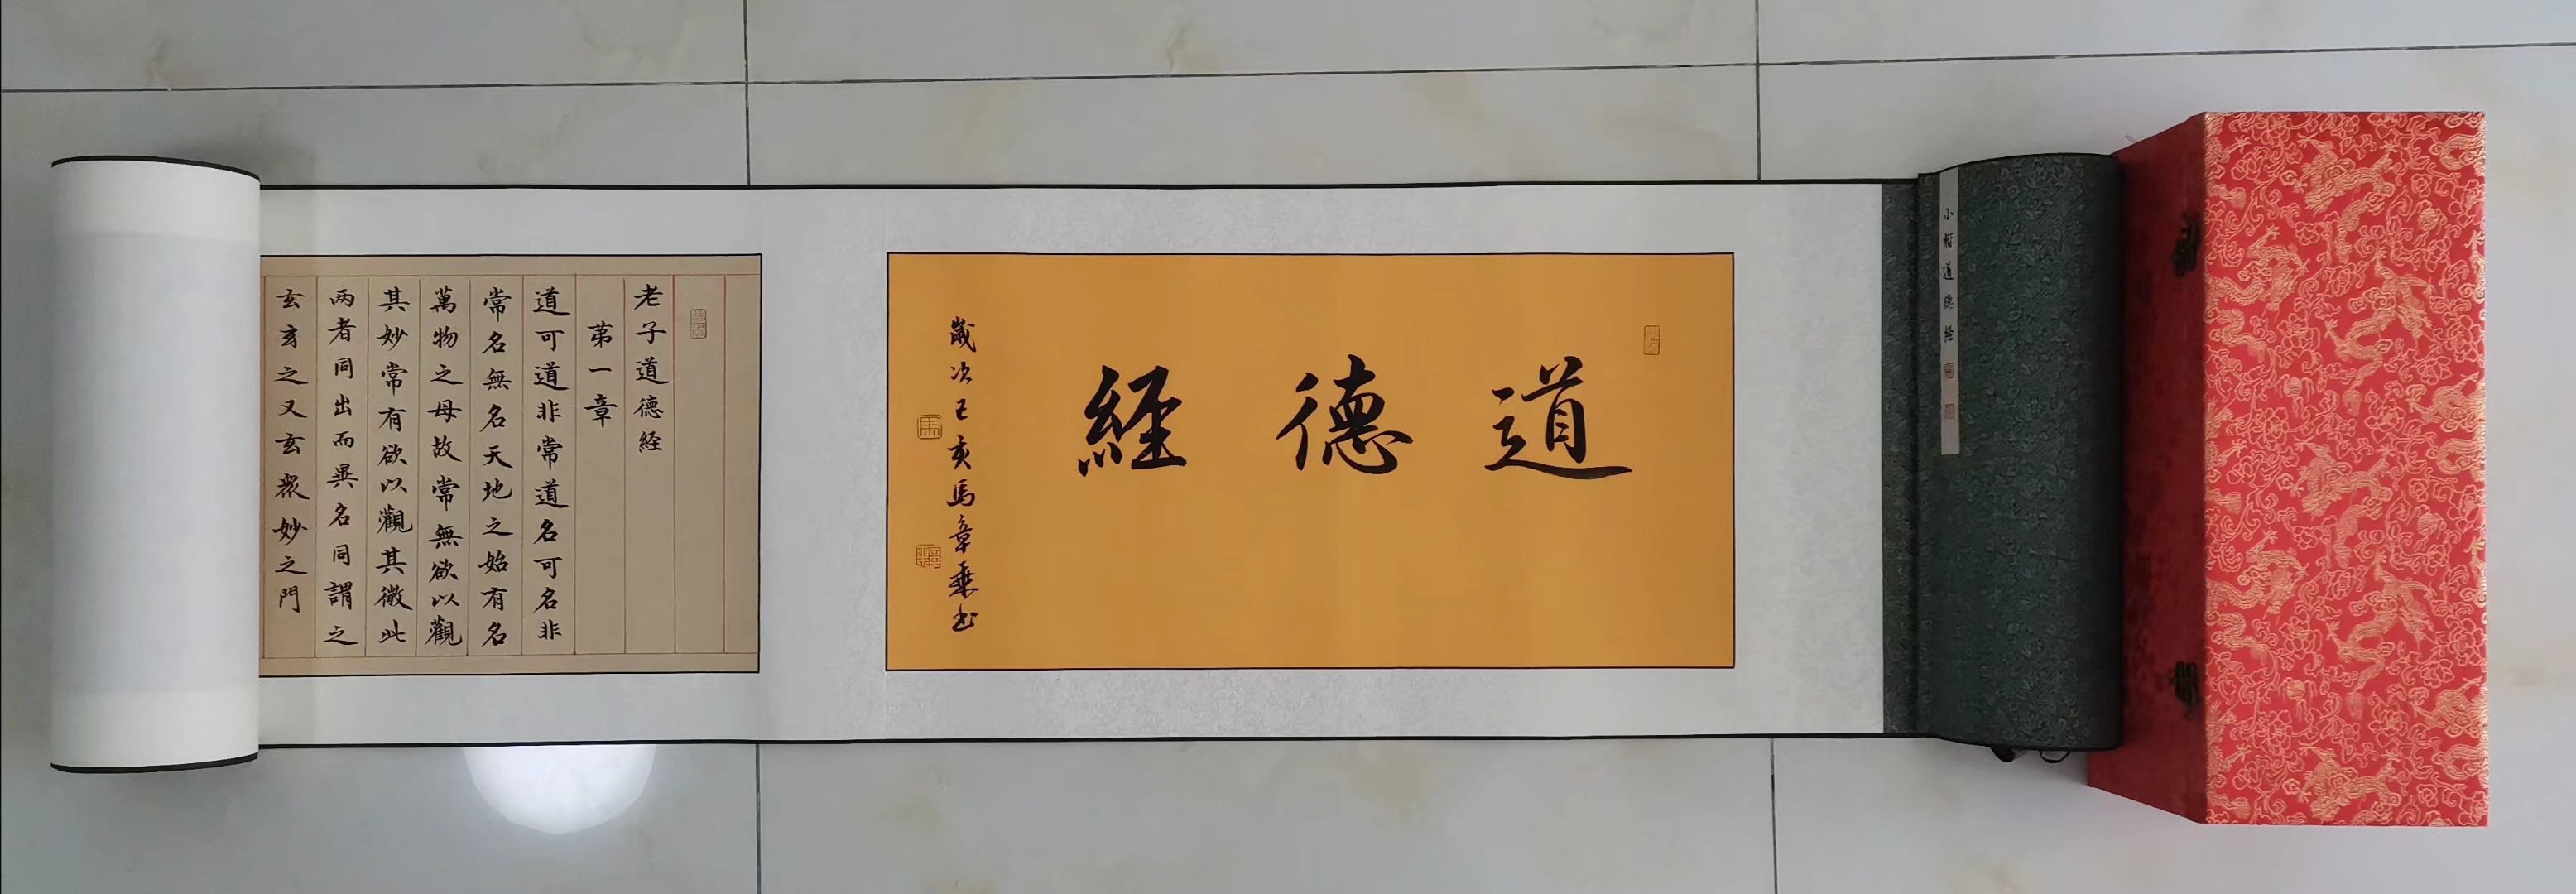 小楷道德經
道德經
歲次己亥馬章乘书
老子道德経
苐一章
道可道非常道名可名非
常名無名天地之始有名
萬物之母故常無欲以觀
其妙常有欲以觀其徼此
两者同出而異名同謂之
玄玄之又玄衆妙之門